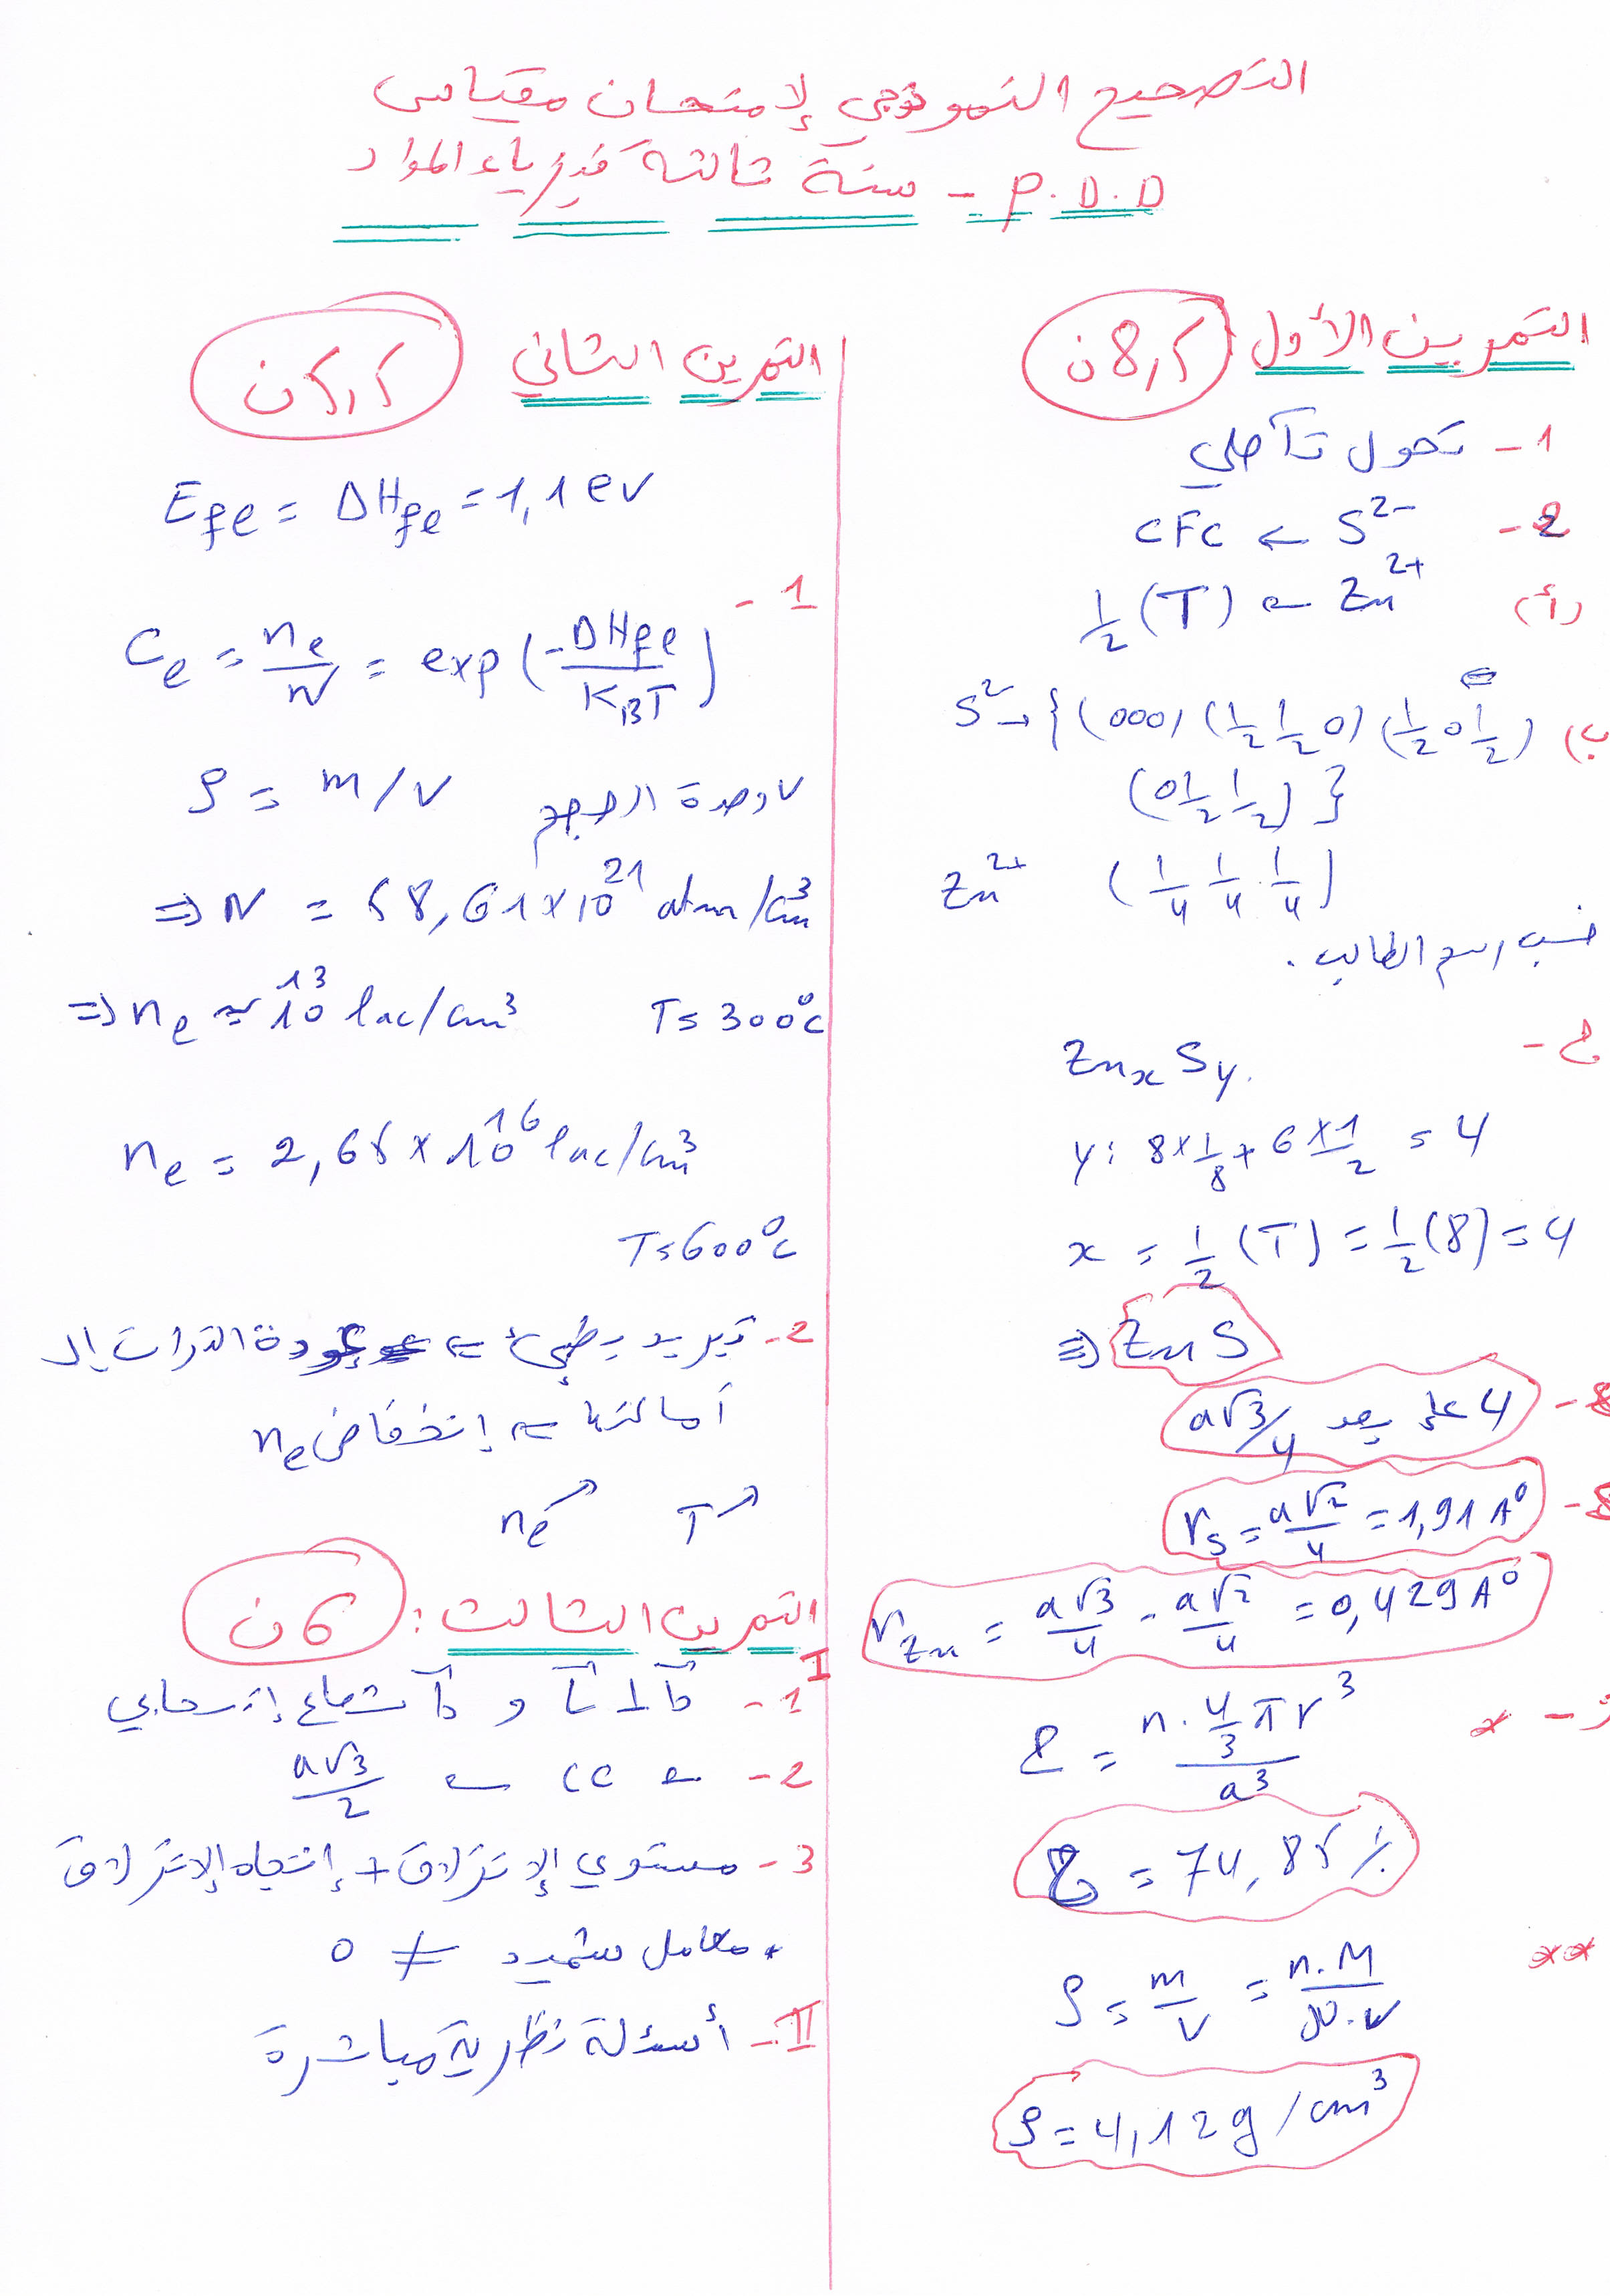 التصحيح النموذجي لإمتحان مقياس
P.D.D - سنة ثالثة فيزياء المواد
التمرين الأول 8,5ن
1 - تحول تآصلي
2 - S²⁻ → CFC
أ) Zn²⁺ → ½(T)
ب) S²⁻ → {(000) (½ ½ 0) (½ 0 ½)
(0 ½ ½)}
Zn²⁺ (¼ ¼ ¼)
حسب رسم الطالب.
ج - ZnₓSᵧ.
y: 8×1/8 + 6×1/2 = 4
x = ½(T) = ½(8) = 4
⇒ ZnS
4 على بعد a√3/4
r_S = a√2/4 = 1,91 A°
r_Zn = a√3/4 - a√2/4 = 0,429 A°
* τ = n·4/3πr³/a³
τ = 74,85 %
** ρ = m/V = n.M/N.V
ρ = 4,12 g/cm³
التمرين الثاني 5,5ن
E_fe = ΔH_fe = 1,1 ev
1 - C_e = n_e/N = exp(-ΔH_fe/K_BT)
ρ = m/V V وحدة الحجم
⇒ N = 58,61×10²¹ atm/cm³
⇒ n_e ≈ 10¹³ lac/cm³ T = 300°C
n_e = 2,65×10¹⁶ lac/cm³
T = 600°C
2 - تبريد بطيئ ⇐ عودة الذرات إلى
أماكنها ⇐ إنخفاض n_e
T↗ n_e↗
التمرين الثالث: 6ن
I
1 - ⊥ و شعاع إنسحابي
2 - CC ← a√3/2
3 - مستوي الإنزلاق + إتجاه الإنزلاق
. معامل شميد ≠ 0
II - أسئلة نظرية مباشرة